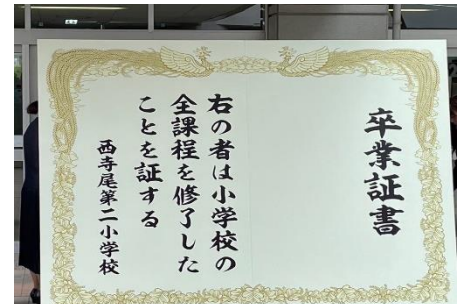 卒業証書
右の者は小学校の
全課程を修了した
ことを証する
西寺尾第二小学校